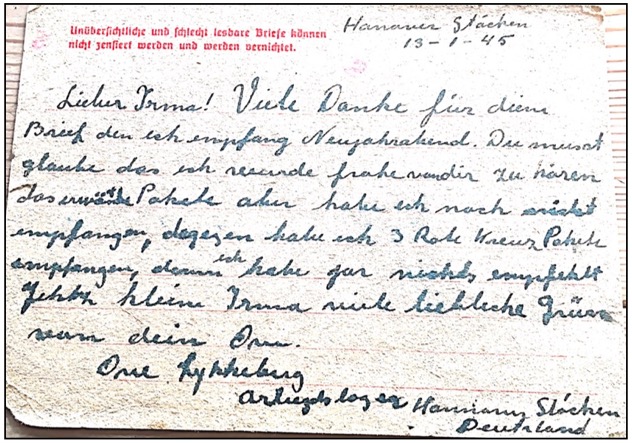 Unübersichtliche und schlecht lesbare Briefe können
nicht zensiert werden und werden vernichtet.
Hanover Stöcken
13-1-45
Lieber Irma! Viele Danke für diem
Brief den ich empfang Neujahrabend. Du musst
glaube das ich wurde frohe von dir zu hören
das erwänte Pakete aber habe ich noch nicht
empfangen, degegen habe ich 3 Rote Kreuz Pakete
empfangen, denn ich habe gar nichts empfehlt
kleine Irma viele liebliche
von dein Ove.
Ove Lykkeberg
Stöcken
Deutzland